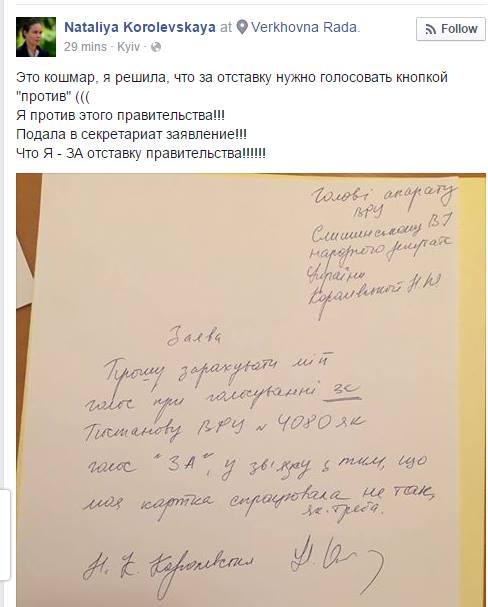 Nataliya Korolevskaya at Verkhovna Rada.
Follow
29 mins · Kyiv ·
Это кошмар, я решила, что за отставку нужно голосовать кнопкой
"против" (((
Я против этого правительства!!!
Подала в секретариат заявление!!!
Что Я - ЗА отставку правительства!!!!!!
Голові апарату
ВРУ
Слишинському В І
народного депутата
України
Королевської Н.Ю
Заява
Прошу зарахувати мій
голос при голосуванні за
Постанову ВРУ № 4080 як
голос "ЗА", у зв'язку з тим, що
моя картка спрацювала не так,
як треба.
Королевська